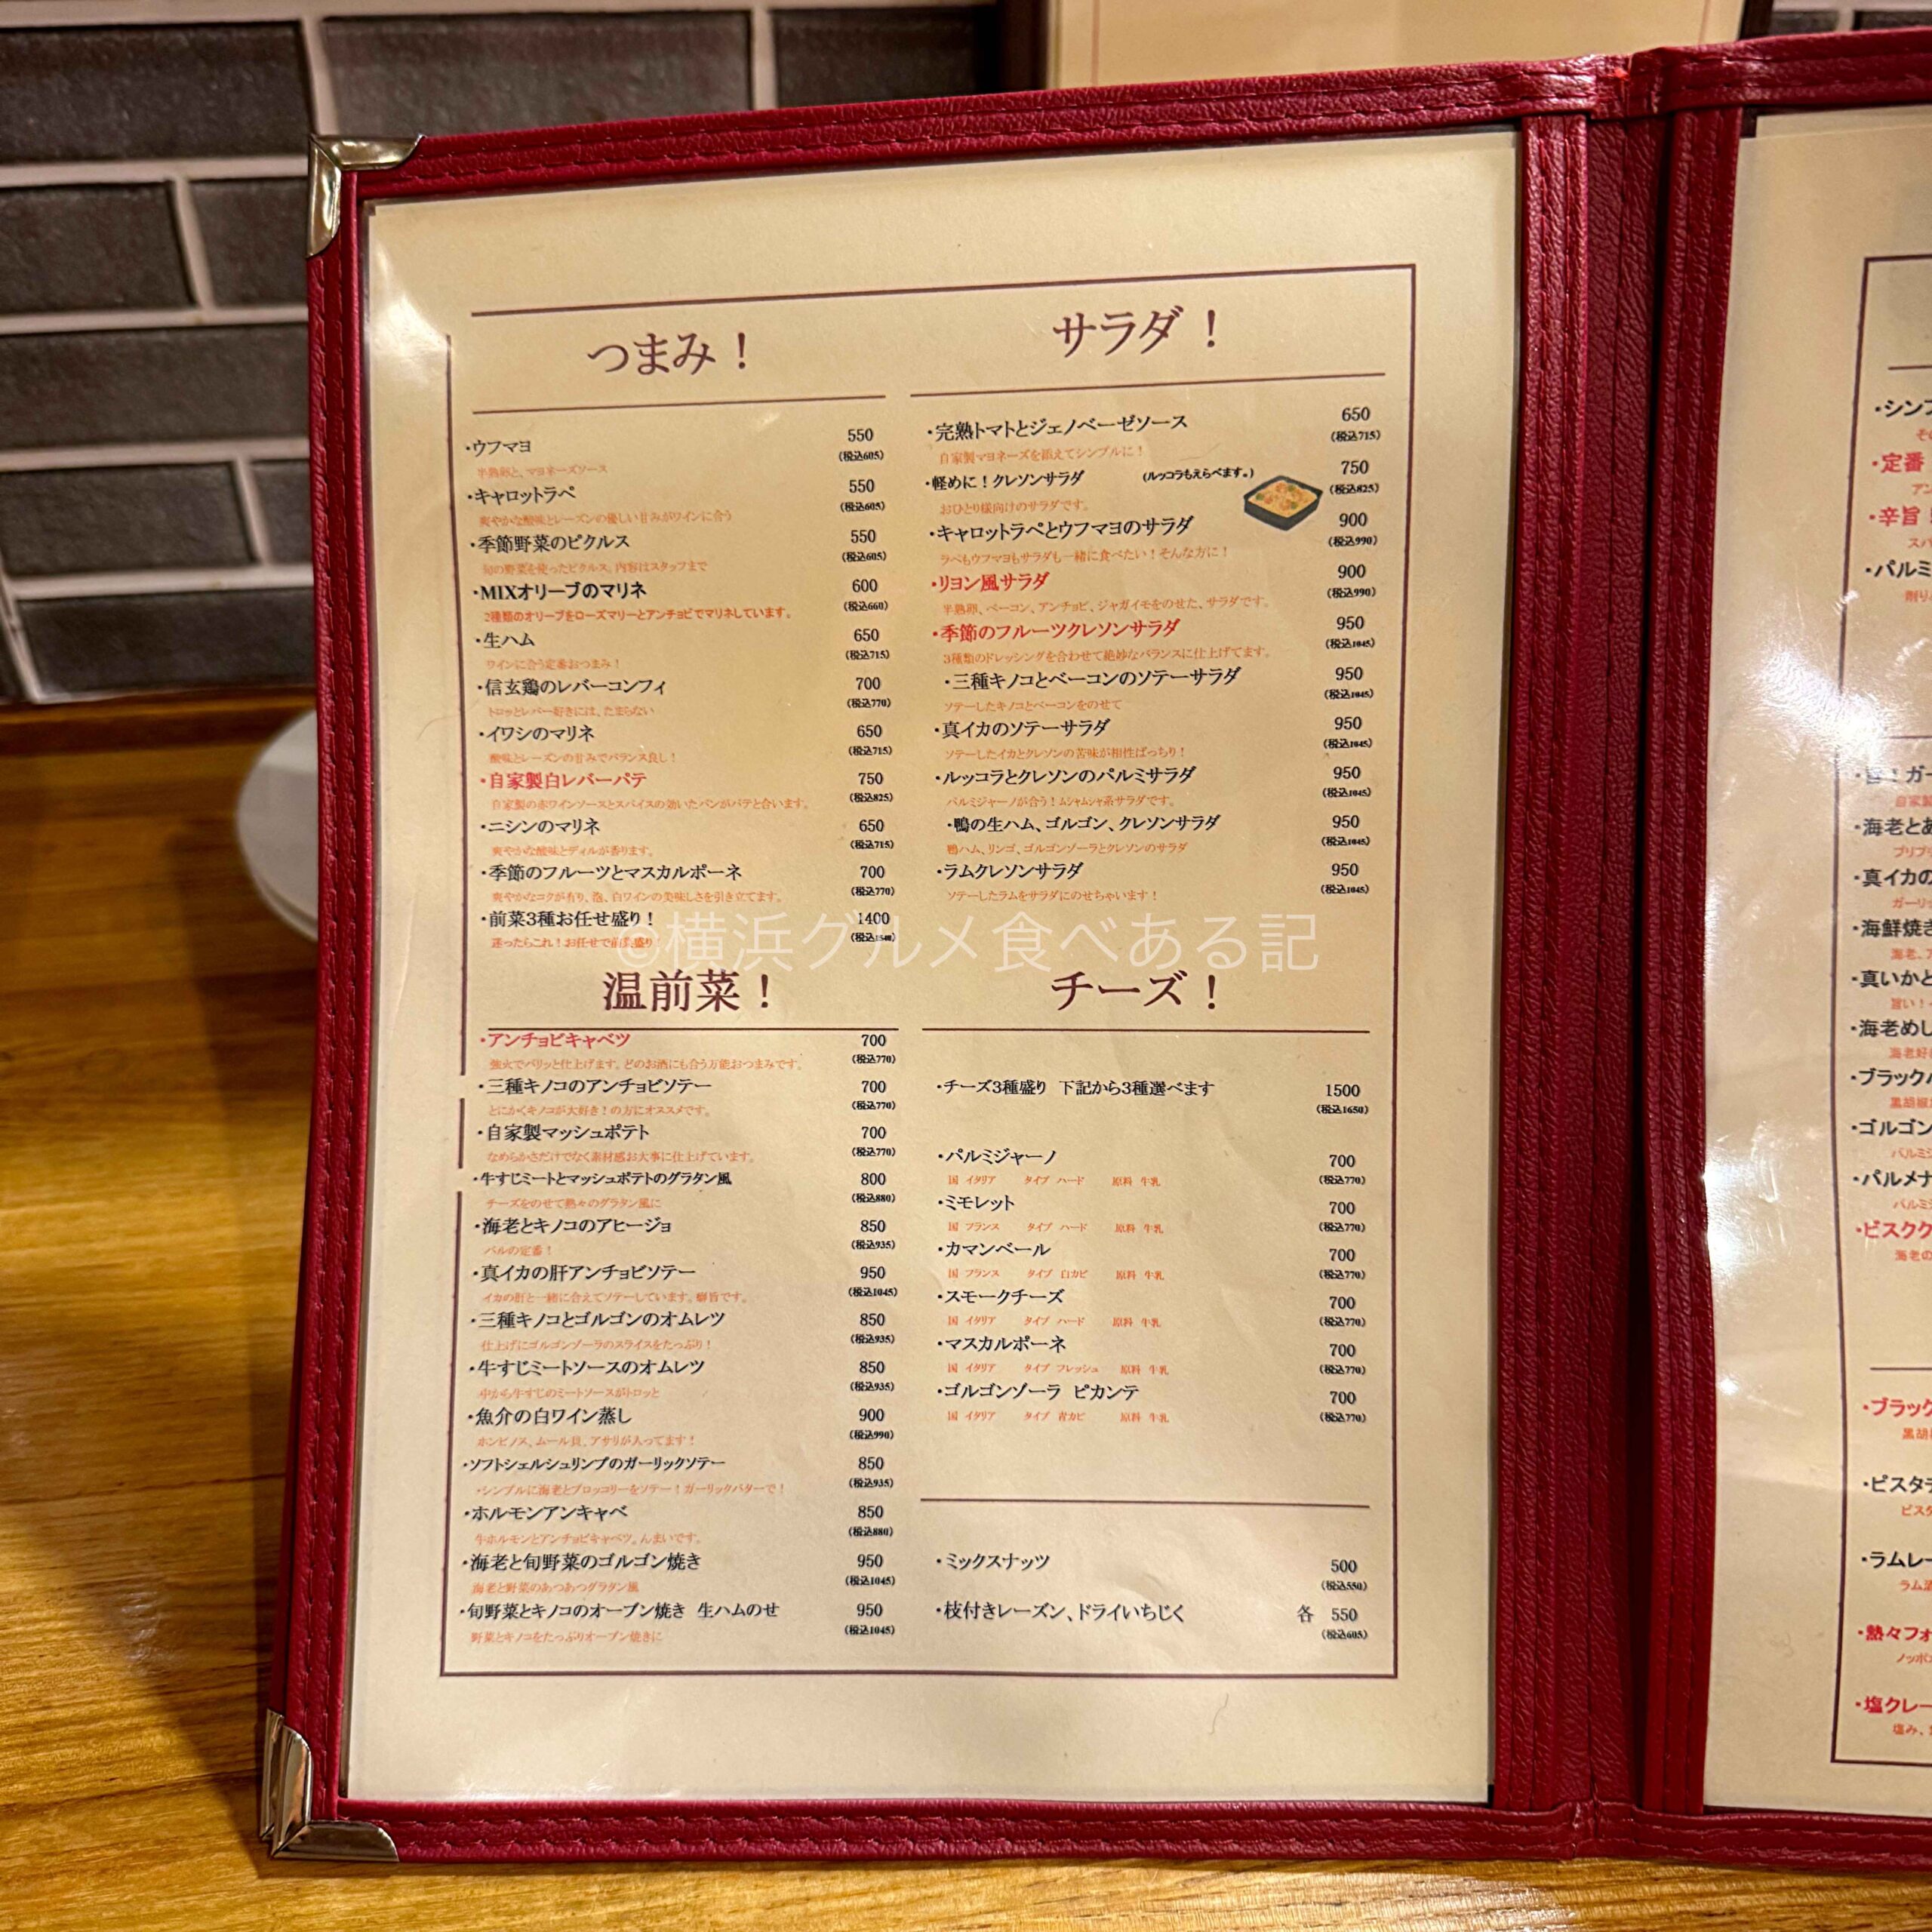 つまみ！
・ウフマヨ 550
半熟卵と、マヨネーズソース (税込605)
・キャロットラペ 550
爽やかな酸味とレーズンの優しい甘みがワインに合う (税込605)
・季節野菜のピクルス 550
旬の野菜を使ったピクルス。内容はスタッフまで (税込605)
・MIXオリーブのマリネ 600
2種類のオリーブをローズマリーとアンチョビでマリネしています。 (税込660)
・生ハム 650
ワインに合う定番おつまみ！ (税込715)
・信玄鶏のレバーコンフィ 700
トロッとレバー好きには、たまらない (税込770)
・イワシのマリネ 650
酸味とレーズンの甘みでバランス良し！ (税込715)
・自家製白レバーパテ 750
自家製の赤ワインソースとスパイスの効いたパンがパテと合います。 (税込825)
・ニシンのマリネ 650
爽やかな酸味とディルが香ります。 (税込715)
・季節のフルーツとマスカルポーネ 700
爽やかなコクが有り、泡、白ワインの美味しさを引き立てます。 (税込770)
・前菜3種お任せ盛り！ 1400
迷ったらこれ！お任せで前菜盛り (税込1540)
サラダ！
・完熟トマトとジェノベーゼソース 650
自家製マヨネーズを添えてシンプルに！ (税込715)
・軽めに！クレソンサラダ (ルッコラもえらべます。) 750
おひとり様向けのサラダです。 (税込825)
・キャロットラペとウフマヨのサラダ 900
ラペもウフマヨもサラダも一緒に食べたい！そんな方に！ (税込990)
・リヨン風サラダ 900
半熟卵、ベーコン、アンチョビ、ジャガイモをのせた、サラダです。 (税込990)
・季節のフルーツクレソンサラダ 950
3種類のドレッシングを合わせて絶妙なバランスに仕上げてます。 (税込1045)
・三種キノコとベーコンのソテーサラダ 950
ソテーしたキノコとベーコンをのせて (税込1045)
・真イカのソテーサラダ 950
ソテーしたイカとクレソンの苦味が相性ばっちり！ (税込1045)
・ルッコラとクレソンのパルミサラダ 950
パルミジャーノが合う！ムシャムシャ系サラダです。 (税込1045)
・鴨の生ハム、ゴルゴン、クレソンサラダ 950
鴨ハム、リンゴ、ゴルゴンゾーラとクレソンのサラダ (税込1045)
・ラムクレソンサラダ 950
ソテーしたラムをサラダにのせちゃいます！ (税込1045)
©横浜グルメ食べある記
温前菜！
・アンチョビキャベツ 700
強火でパリッと仕上げます。どのお酒にも合う万能おつまみです。 (税込770)
・三種キノコのアンチョビソテー 700
とにかくキノコが大好き！の方にオススメです。 (税込770)
・自家製マッシュポテト 700
なめらかさだけでなく素材感お大事に仕上げています。 (税込770)
・牛すじミートとマッシュポテトのグラタン風 800
チーズをのせて熱々のグラタン風に (税込880)
・海老とキノコのアヒージョ 850
バルの定番！ (税込935)
・真イカの肝アンチョビソテー 950
イカの肝と一緒に合えてソテーしています。癖旨です。 (税込1045)
・三種キノコとゴルゴンのオムレツ 850
仕上げにゴルゴンゾーラのスライスをたっぷり！ (税込935)
・牛すじミートソースのオムレツ 850
中から牛すじのミートソースがトロッと (税込935)
・魚介の白ワイン蒸し 900
ホンビノス、ムール貝、アサリが入ってます！ (税込990)
・ソフトシェルシュリンプのガーリックソテー 850
・シンプルに海老とブロッコリーをソテー！ガーリックバターで！ (税込935)
・ホルモンアンキャベ 850
牛ホルモンとアンチョビキャベツ。んまいです。 (税込880)
・海老と旬野菜のゴルゴン焼き 950
海老と野菜のあつあつグラタン風 (税込1045)
・旬野菜とキノコのオーブン焼き 生ハムのせ 950
野菜とキノコをたっぷりオーブン焼きに (税込1045)
チーズ！
・チーズ3種盛り 下記から3種選べます 1500
(税込1650)
・パルミジャーノ 700
国 イタリア タイプ ハード 原料 牛乳 (税込770)
・ミモレット 700
国 フランス タイプ ハード 原料 牛乳 (税込770)
・カマンベール 700
国 フランス タイプ 白カビ 原料 牛乳 (税込770)
・スモークチーズ 700
国 イタリア タイプ ハード 原料 牛乳 (税込770)
・マスカルポーネ 700
国 イタリア タイプ フレッシュ 原料 牛乳 (税込770)
・ゴルゴンゾーラ ピカンテ 700
国 イタリア タイプ 青カビ 原料 牛乳 (税込770)
・ミックスナッツ 500
(税込550)
・枝付きレーズン、ドライいちじく 各 550
(税込605)
・シンプ
・定番
・辛旨
・パルミ
削り
自家製
・海老とあ
プリプ
・真イカの
ガーリッ
・海鮮焼き
海老、ア
・真いかと
旨い！
・海老めし
海老好
・ブラック
黒胡椒
・ゴルゴン
パルミジ
・パルメナ
パルミ
・ビスクク
海老の
・ブラック
黒胡
・ピスタチ
ピスタ
・ラムレー
ラム酒
・熱々フォ
ノッポ
・塩クレー
塩み、